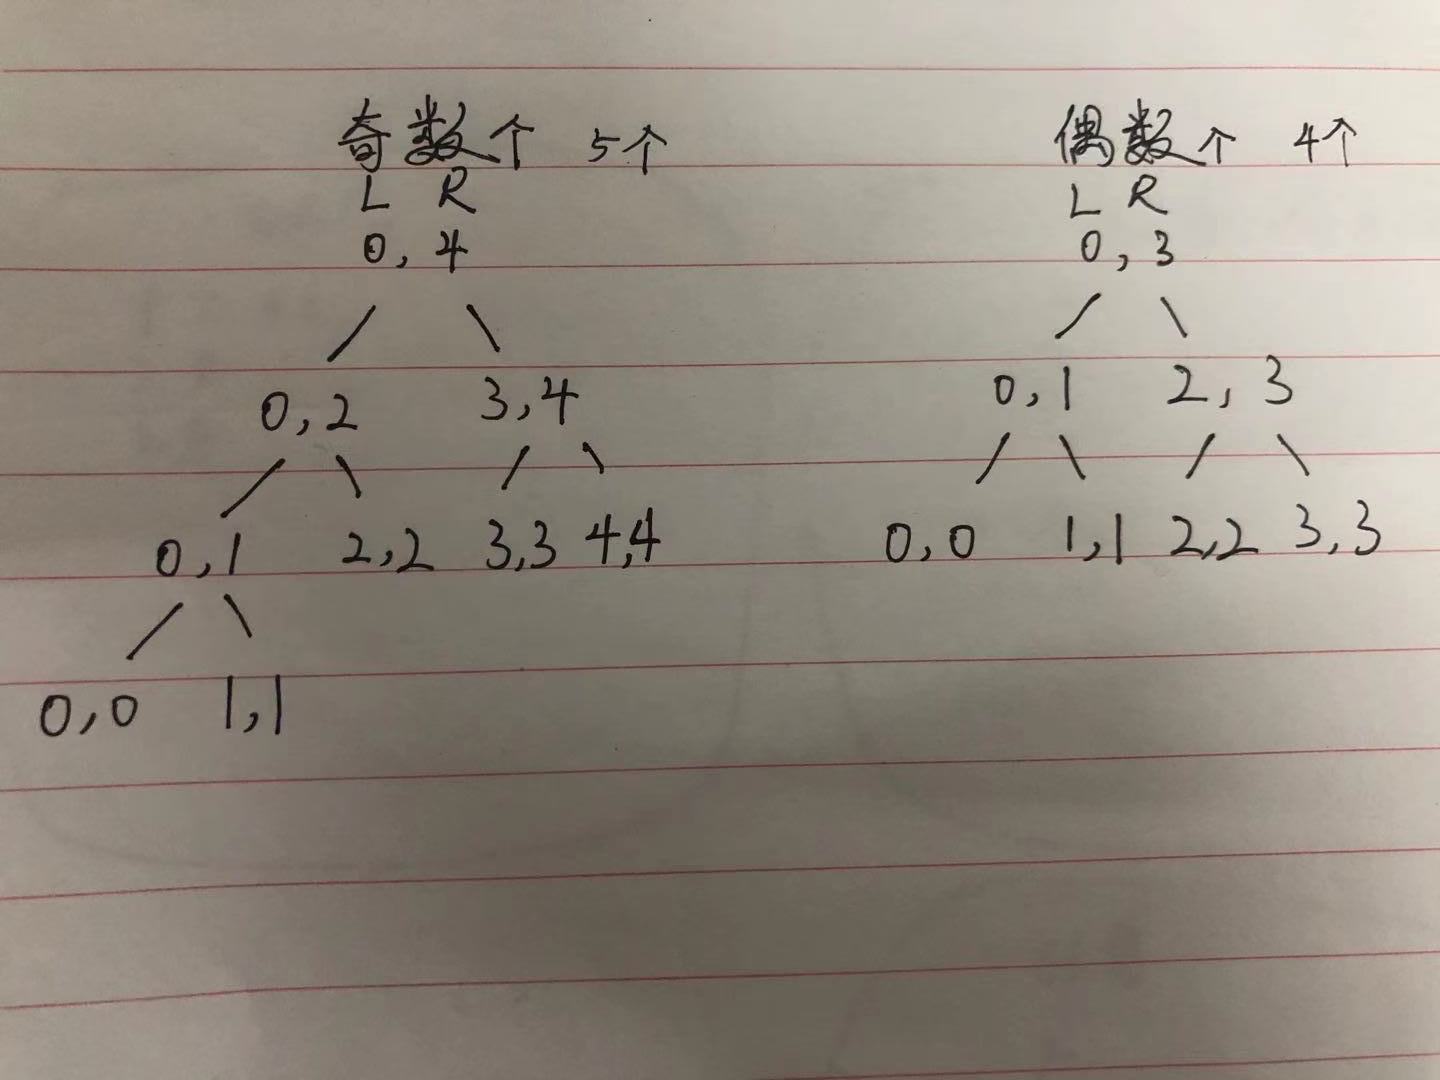 奇数个 5个
L R
0,4
0,2 3,4
0,1 2,2 3,3 4,4
0,0 1,1
偶数个 4个
L R
0,3
0,1 2,3
0,0 1,1 2,2 3,3